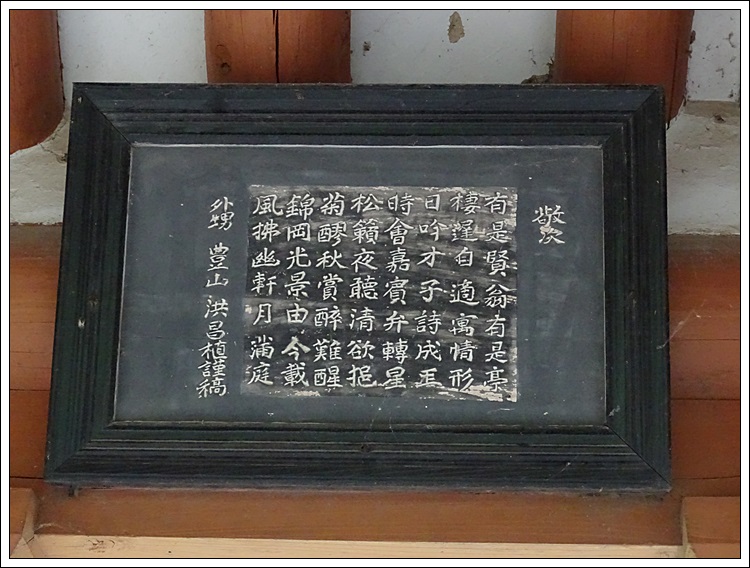 敬次
有是賢翁有是亭
棲遲自適寓情形
日吟才子詩成玉
時會嘉賓弁轉星
松籟夜聽清欲挹
菊醪秋賞醉難醒
錦岡光景由今載
風拂幽軒月滿庭
外甥 豊山 洪昌植謹稿